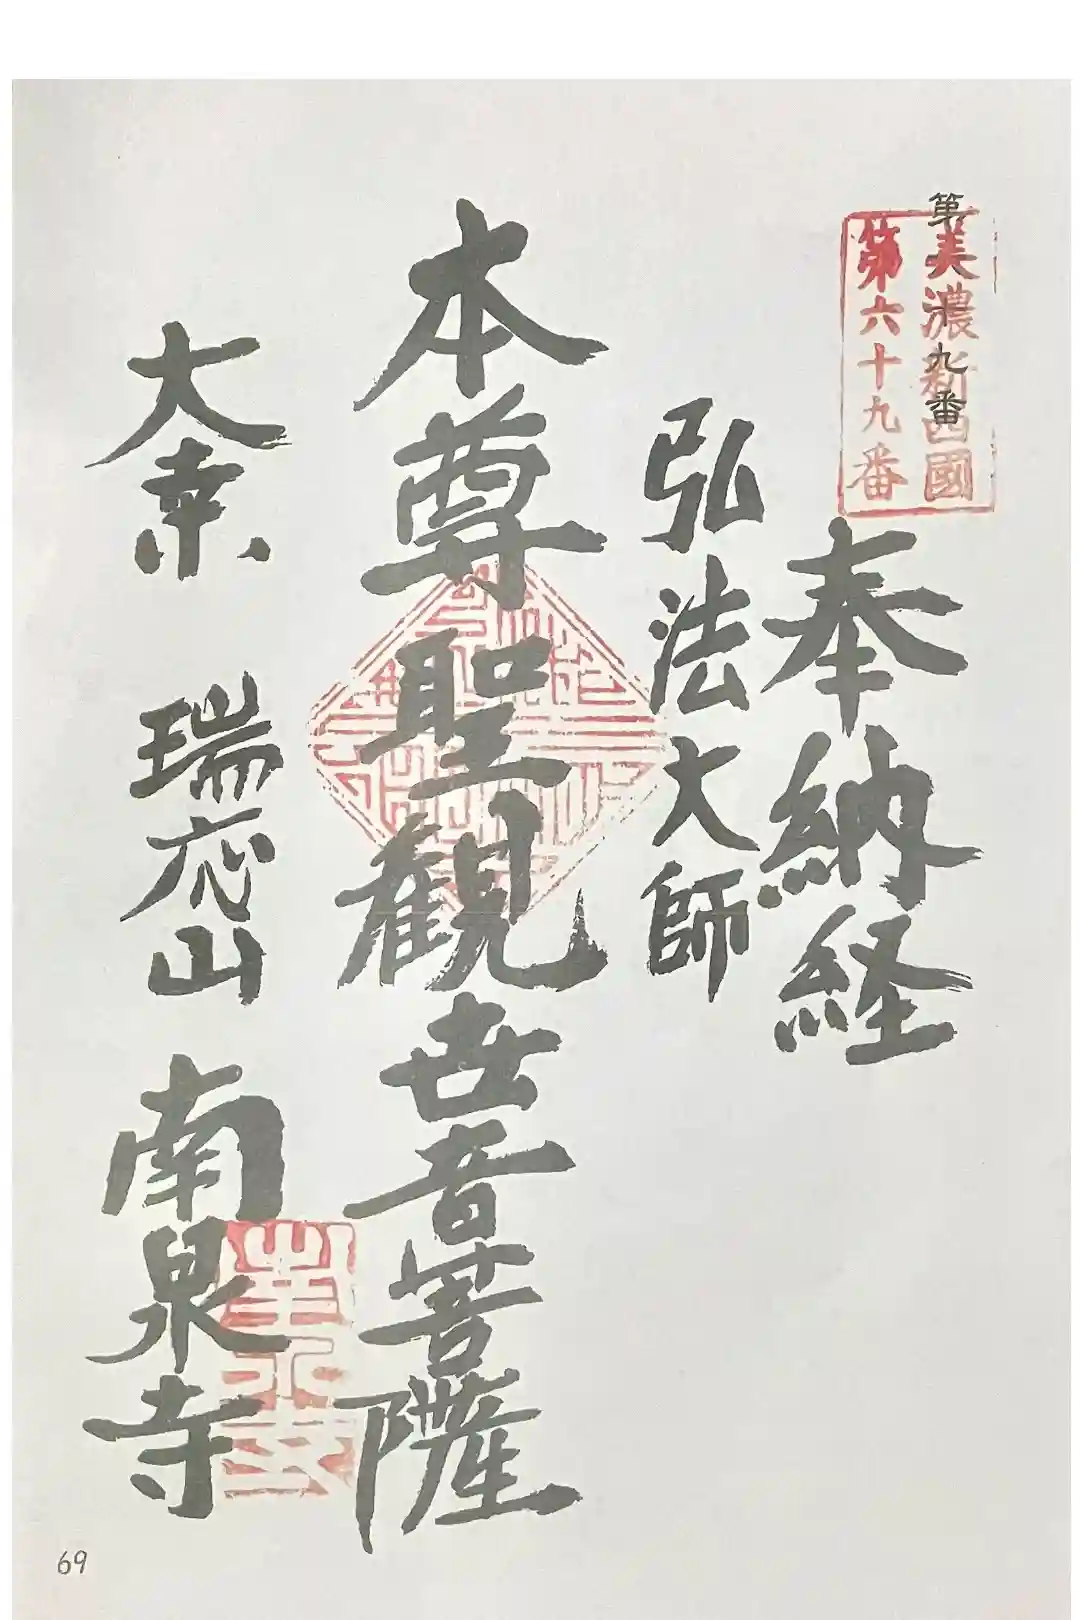 第 九番
美濃新四國
第六十九番
奉納経
弘法大師
本尊聖観世音菩薩
大桑 瑞応山 南泉寺
69